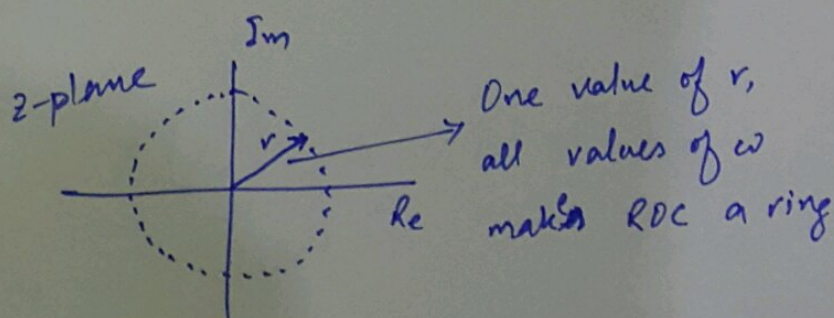 Im
z-plane
r
Re
One value of r,
all values of ω
makes ROC a ring